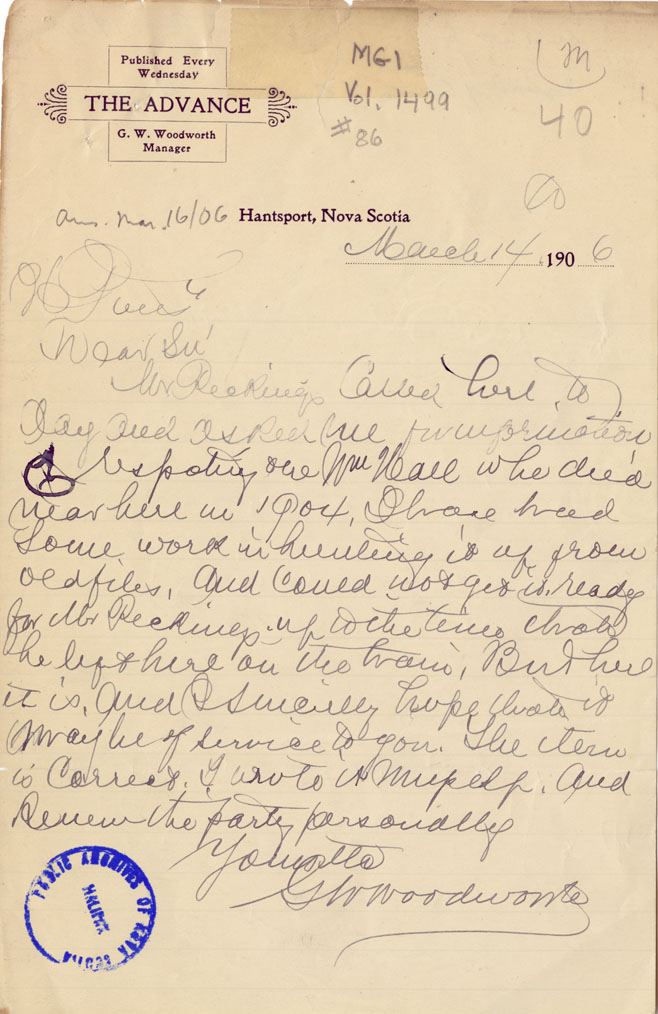 Published Every
Wednesday
THE ADVANCE
G. W. Woodworth
Manager
MG1
Vol. 1499
#86
M
40
ans. Mar. 16/06
Hantsport, Nova Scotia
March 14 1906
Dear Sir
Mr Reckings Called here to
day and asked me for information
respoting one Wm Hall who died
near here in 1904, I have had
some work in hunting it up from
old files, and could not get it ready
for Mr Reckings up to the time that
he left here on the train, But here
it is, and I sincerely hope that it
may be of service to you. The item
is correct. I wrote it myself. and
knew the party personally
Yours tr
GW Woodworth
PUBLIC ARCHIVES OF NOVA SCOTIA
HALIFAX